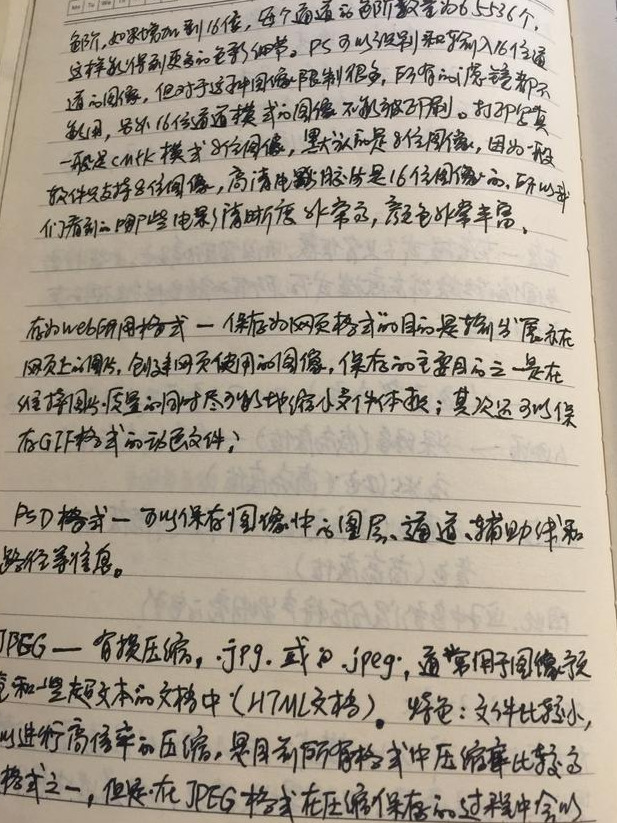 色阶，如果增加到16位，每个通道的色阶数量为65536个，
这样就能得到更多的色彩细节。PS可以识别和输入16位通
道的图像，但对于这种图像限制很多，所有的滤镜都不
能用，另外16位通道模式的图像不能被印刷。打印写真
一般是CMYK模式8位图像，默认的是8位图像，因为一般
软件只支持8位图像，高清电影胶片是16位图像的，所以我
们看到的哪些电影清晰度非常高，颜色非常丰富。
存为web所用格式一保存为网页格式的目的是输出"展示在
网页上的图片，创建网页使用的图像，保存的主要目的之一是在
维持图片质量的同时尽可能地缩小文件体积；其次还可以保
存GIF格式的动态文件；
PSD格式一可以保存图像中的图层、通道、辅助线和
路径等信息。
JPEG—有损压缩，.jpg.或为.jpeg，通常用于图像预
览和一些超文本的文档中（HTML文档）。特色：文件比较小，
以进行高倍率的压缩，是目前所有格式中压缩率比较高
格式之一，但是在JPEG格式在压缩保存的过程中会以